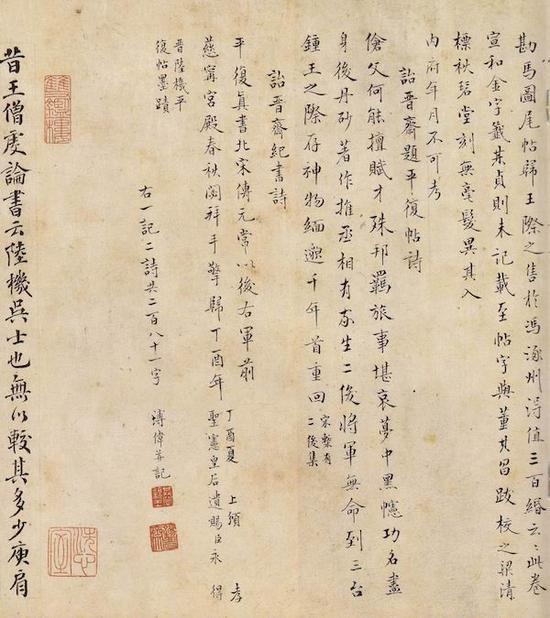 勘馬圖尾帖歸王際之售於馮涿州得值三百緡云云此卷
宣和金字籤葉貞則未記載至帖字與董其昌跋核之梁清
標秋碧堂刻無毫髮異其入
內府年月不可考
詒晉齋題平復帖詩
傖父何能擅賦才殊邦羈旅事堪哀夢中黑幰功名盡
身後丹砂著作推丞相有家生二俊將軍無命到三台
鍾王之際存神物緬邈千年首重回
宋槧有
二俊集
詒晉齋紀書詩
平復真書北宋傳元常以後右軍前
慈寧宮殿春秋閱拜手擎歸丁酉年
丁酉夏 上頒 孝
聖憲皇后遺賜臣永 得
晉陸機平
復帖墨蹟
右一記二詩共二百八十一字 溥偉并記
昔王僧虔論書云陸機吳士也無以較其多少庾肩